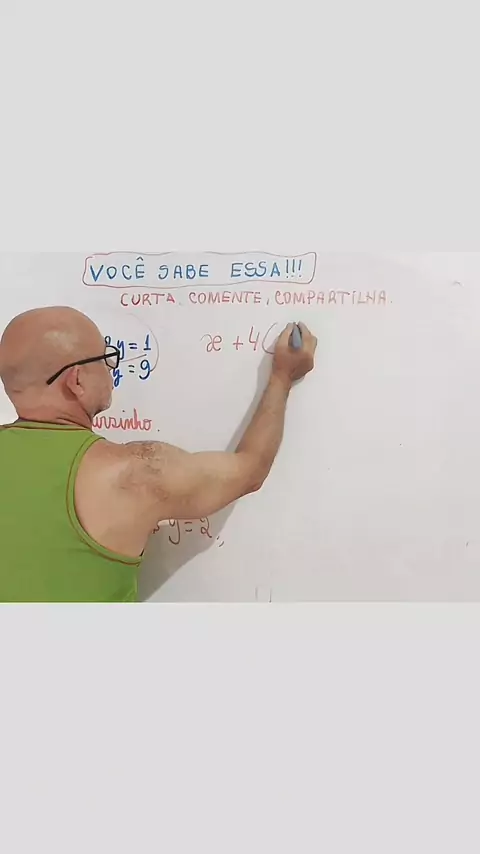 VOCÊ SABE ESSA!!!
CURTA, COMENTE, COMPARTILHA.
y = 1
x + 4(
y = 9
ursinho.
y = 2